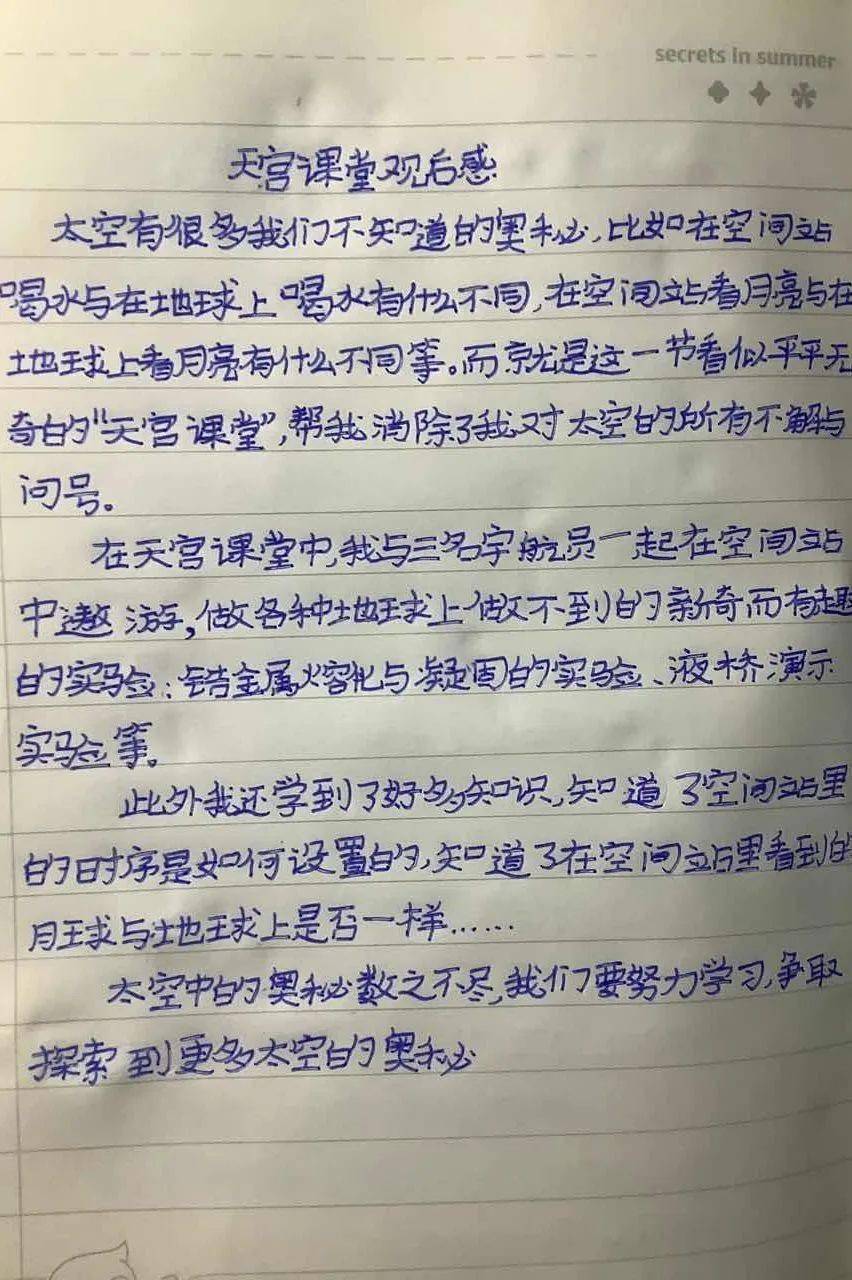 secrets in summer
天宫课堂观后感
太空有很多我们不知道的奥秘,比如在空间站
喝水与在地球上喝水有什么不同,在空间站看月亮与在
地球上看月亮有什么不同等。而就是这一节看似平平无
奇的"天宫课堂",帮我消除了我对太空的所有不解与
问号。
在天宫课堂中,我与三名宇航员一起在空间站
中遨游,做各种地球上做不到的新奇而有趣
的实验:锆金属熔化与凝固的实验、液桥演示
实验等。
此外我还学到了好多知识,知道了空间站里
的时序是如何设置的,知道了在空间站里看到的
月球与地球上是否一样……
太空中的奥秘数之不尽,我们要努力学习,争取
探索到更多太空的奥秘